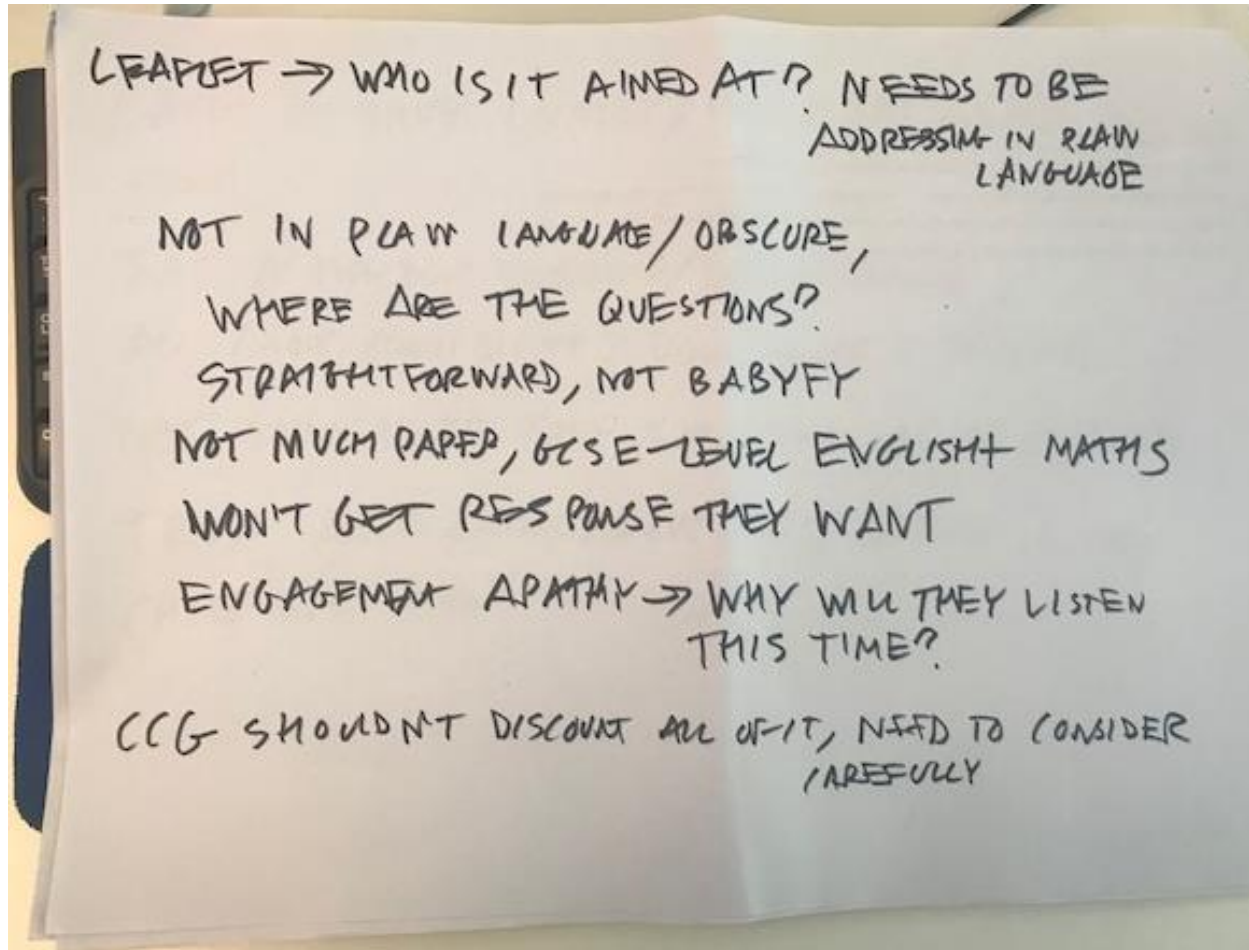 LEAFLET → WHO IS IT AIMED AT? NEEDS TO BE
ADDRESSING IN PLAIN
LANGUAGE
NOT IN PLAIN LANGUAGE/OBSCURE,
WHERE ARE THE QUESTIONS?
STRAIGHTFORWARD, NOT BABYFY
NOT MUCH PAPER, GCSE-LEVEL ENGLISH + MATHS
WON'T GET RESPONSE THEY WANT
ENGAGEMENT APATHY → WHY WILL THEY LISTEN
THIS TIME?
CCG SHOULDN'T DISCOUNT ALL OF IT, NEED TO CONSIDER
CAREFULLY